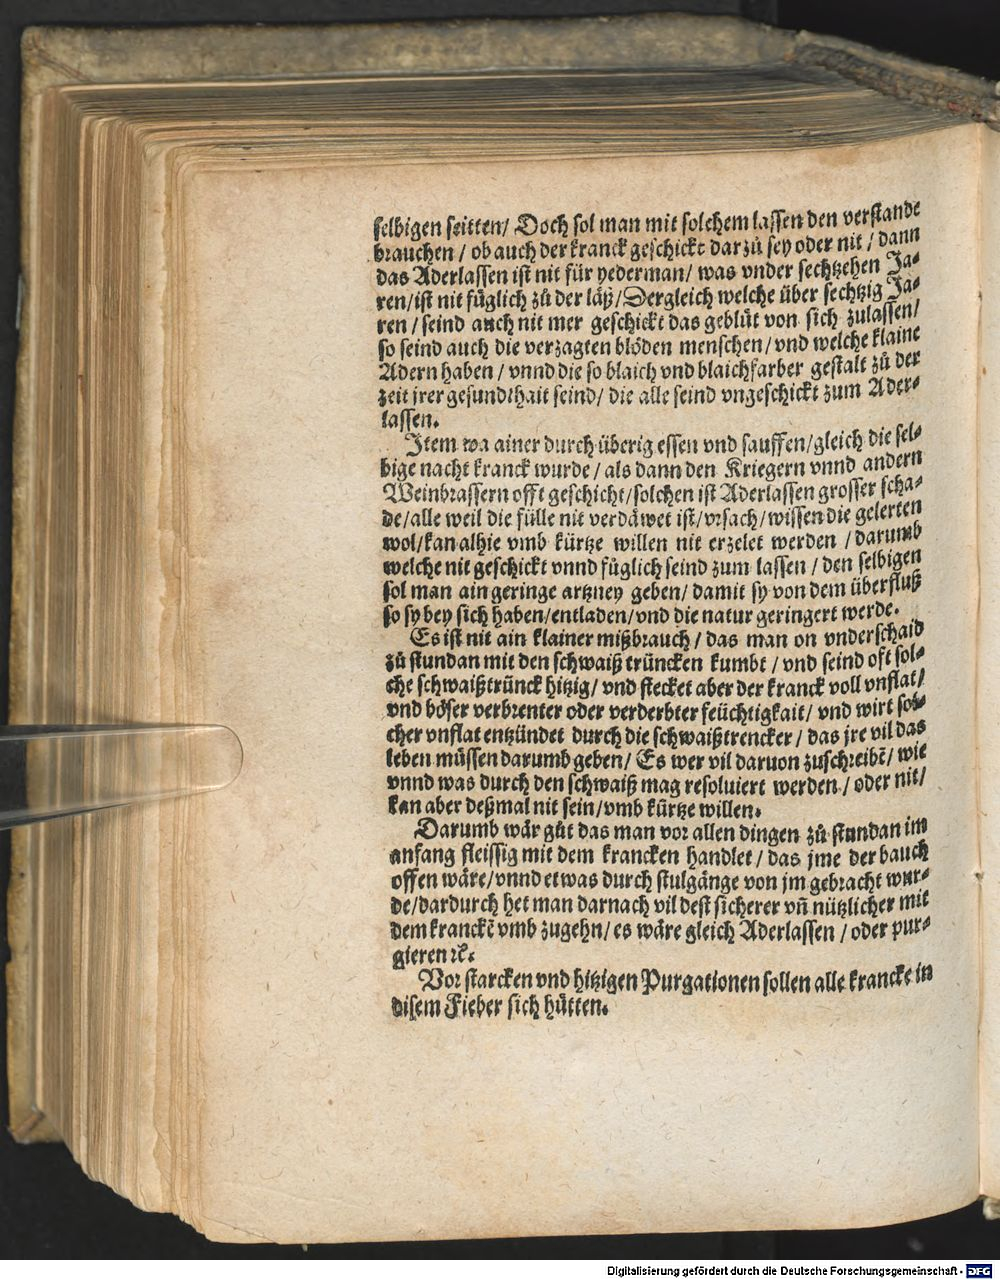 selbigen seitten/ Doch sol man mit solchem lassen den verstande
brauchen / ob auch der kranck geschickt dar zů sey oder nit / dann
das Aderlassen ist nit für yederman/ was vnder sechtzehen Ja-
ren/ist nit füglich zů der läß/Dergleich welche über sechtzig Ja-
ren / seind auch nit mer geschickt das geblüt von sich zulassen/
so seind auch die verzagten blöden menschen/ vnd welche klaine
Adern haben / vnnd die so blaich vnd blaichfarber gestalt zů der
zeit jrer gesundthait seind/ die alle seind vngeschickt zum Ader-
lassen.
Item wa ainer durch überig essen vnd sauffen/gleich die sel-
bige nacht kranck wurde / als dann den Kriegern vnnd andern
Weinbrassern offt geschicht/solchen ist Aderlassen grosser scha-
de/alle weil die fülle nit verdäwet ist/vrsach/wissen die gelerten
wol/kan alhie vmb kürtze willen nit erzelet werden / darumb
welche nit geschickt vnnd füglich seind zum lassen / den selbigen
sol man ain geringe artzney geben/ damit sy von dem überfluß
so sy bey sich haben/entladen/vnd die natur geringert werde.
Es ist nit ain klainer mißbrauch / das man on vnderschaid
zů stundan mit den schwaiß trüncken kumbt / vnd seind oft sol-
che schwaißtrünck hitzig/ vnd stecket aber der kranck voll vnflat/
vnd böser verbrenter oder verderbter feüchtigkait/ vnd wirt sol-
cher vnflat entzündet durch die schwaißtrencker / das jre vil das
leben müssen darumb geben/ Es wer vil daruon zuschreibē/ wie
vnnd was durch den schwaiß mag resoluiert werden / oder nit/
kan aber deßmal nit sein/vmb kürtze willen.
Darumb wär gůt das man vor allen dingen zů stundan im
anfang fleissig mit dem krancken handlet / das jme der bauch
offen wäre/vnnd etwas durch stulgänge von jm gebracht wur-
de/dardurch het man darnach vil dest sicherer vñ nützlicher mit
dem kranckē vmb zugehn/ es wäre gleich Aderlassen / oder pur-
gieren ꝛc.
Vor starcken vnd hitzigen Purgationen sollen alle krancke in
disem Fieber sich hütten.
Digitalisierung gefördert durch die Deutsche Forschungsgemeinschaft - DFG